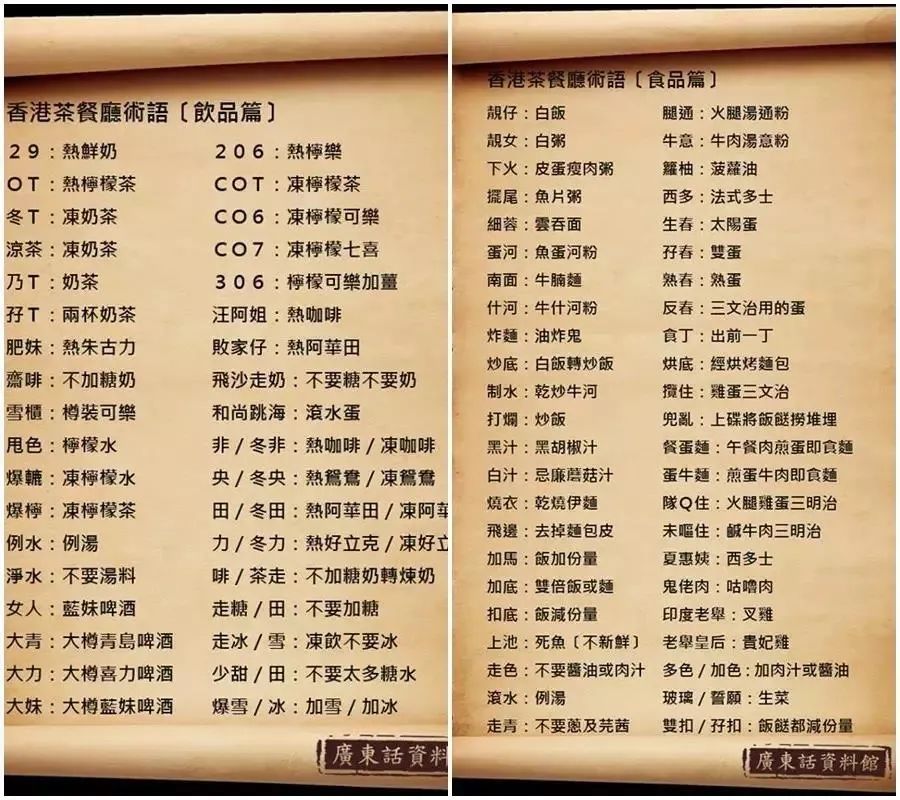 香港茶餐廳術語〔飲品篇〕
29：熱鮮奶 206：熱檸樂
OT：熱檸檬茶 COT：凍檸檬茶
冬T：凍奶茶 CO6：凍檸檬可樂
涼茶：凍奶茶 CO7：凍檸檬七喜
乃T：奶茶 306：檸檬可樂加薑
孖T：兩杯奶茶 汪阿姐：熱咖啡
肥妹：熱朱古力 敗家仔：熱阿華田
齋啡：不加糖奶 飛沙走奶：不要糖不要奶
雪櫃：樽裝可樂 和尚跳海：滾水蛋
甩色：檸檬水 非/冬非：熱咖啡/凍咖啡
爆轆：凍檸檬水 央/冬央：熱鴛鴦/凍鴛鴦
爆檸：凍檸檬茶 田/冬田：熱阿華田/凍阿華
例水：例湯 力/冬力：熱好立克/凍好立
淨水：不要湯料 啡/茶走：不加糖奶轉煉奶
女人：藍妹啤酒 走糖/田：不要加糖
大青：大樽青島啤酒 走冰/雪：凍飲不要冰
大力：大樽喜力啤酒 少甜/田：不要太多糖水
大妹：大樽藍妹啤酒 爆雪/冰：加雪/加冰
廣東話資料
香港茶餐廳術語〔食品篇〕
靚仔：白飯 腿通：火腿湯通粉
靚女：白粥 牛意：牛肉湯意粉
下火：皮蛋瘦肉粥 籮柚：菠蘿油
擺尾：魚片粥 西多：法式多士
細蓉：雲吞面 生舂：太陽蛋
蛋河：魚蛋河粉 孖舂：雙蛋
南面：牛腩麵 熟舂：熟蛋
什河：牛什河粉 反舂：三文治用的蛋
炸麵：油炸鬼 食丁：出前一丁
炒底：白飯轉炒飯 烘底：經烘烤麵包
制水：乾炒牛河 攬住：雞蛋三文治
打爛：炒飯 兜亂：上碟將飯餸撈堆埋
黑汁：黑胡椒汁 餐蛋麵：午餐肉煎蛋即食麵
白汁：忌廉蘑菇汁 蛋牛麵：煎蛋牛肉即食麵
燒衣：乾燒伊麵 隊Q住：火腿雞蛋三明治
飛邊：去掉麵包皮 未嘔住：鹹牛肉三明治
加馬：飯加份量 夏惠姨：西多士
加底：雙倍飯或麵 鬼佬肉：咕嚕肉
扣底：飯減份量 印度老舉：叉雞
上池：死魚〔不新鮮〕 老舉皇后：貴妃雞
走色：不要醬油或肉汁 多色/加色：加肉汁或醬油
滾水：例湯 玻璃/誓願：生菜
走青：不要蔥及芫茜 雙扣/孖扣：飯餸都減份量
廣東話資料館